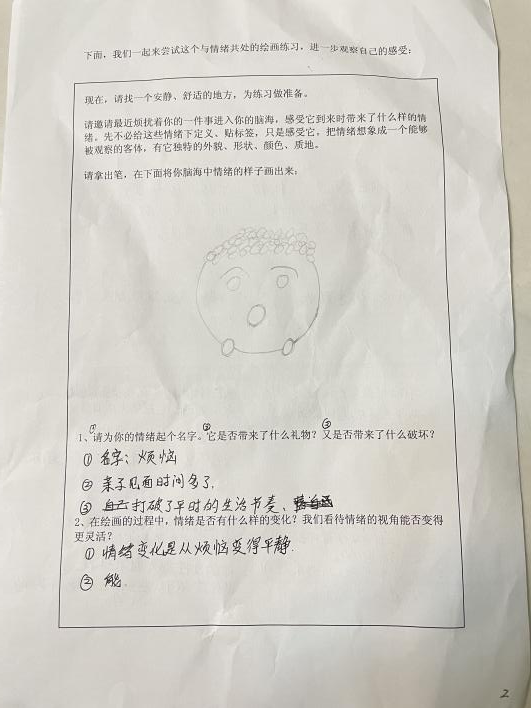 下面，我们一起来尝试这个与情绪共处的绘画练习，进一步观察自己的感受：
现在，请找一个安静、舒适的地方，为练习做准备。
请邀请最近烦扰着你的一件事进入你的脑海，感受它到来时带来了什么样的情
绪。先不必给这些情绪下定义、贴标签，只是感受它，把情绪想象成一个能够
被观察的客体，有它独特的外貌、形状、颜色、质地。
请拿出笔，在下面将你脑海中情绪的样子画出来：
① ② ③
1、请为你的情绪起个名字。它是否带来了什么礼物？又是否带来了什么破坏？
① 名字：烦恼
② 亲子见面时间多了.
③ 打破了平时的生活节奏、
2、在绘画的过程中，情绪是否有什么样的变化？我们看待情绪的视角能否变得
更灵活？
① 情绪变化是从烦恼变得平静.
② 能.
2